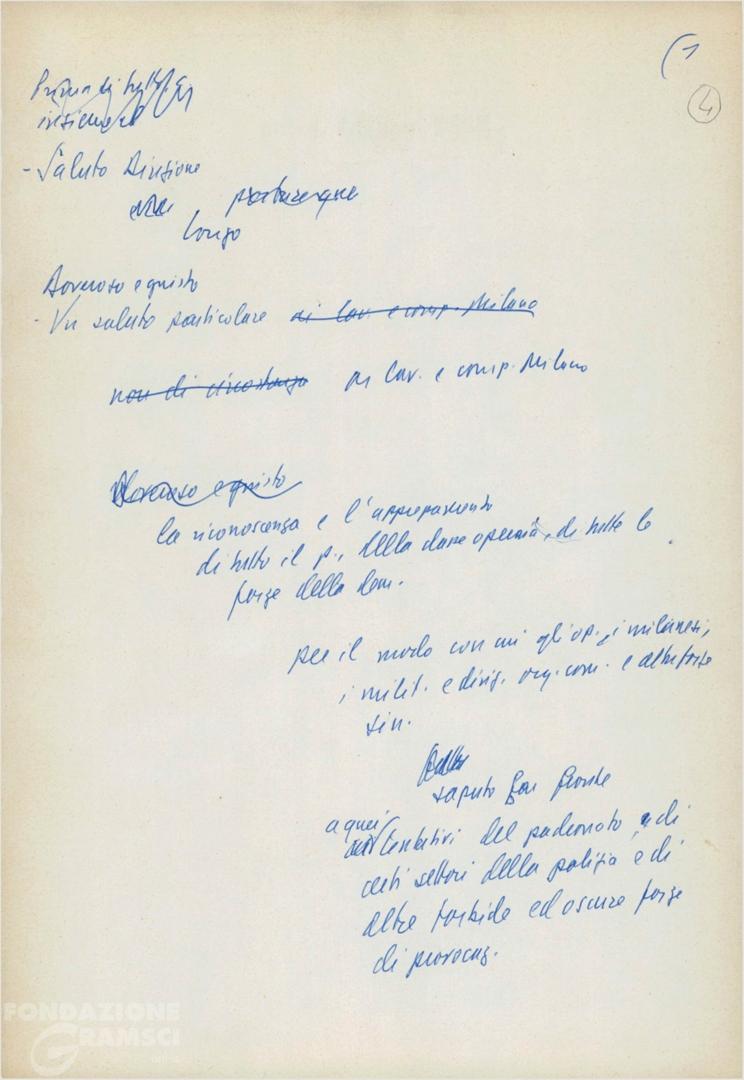 (1
4
Prima di tutto,
- Saluto Direzione
Longo
Doveroso e giusto
- Un saluto particolare ai lav. e comp. Milano
non di circostanza ai lav. e comp. Milano
Doveroso e giusto
la riconoscenza e l'apprezzamento
di tutto il p., della classe operaia, di tutte le
forze della dem.
per il modo con cui gli op., i milanesi,
i milit. e dirig. org. com. e altre forze
sin.
saputo far fronte
a quei
tentativi del padronato, e di
certi settori della polizia e di
altre torbide ed oscure forze
di provocaz.
FONDAZIONE
GRAMSCI